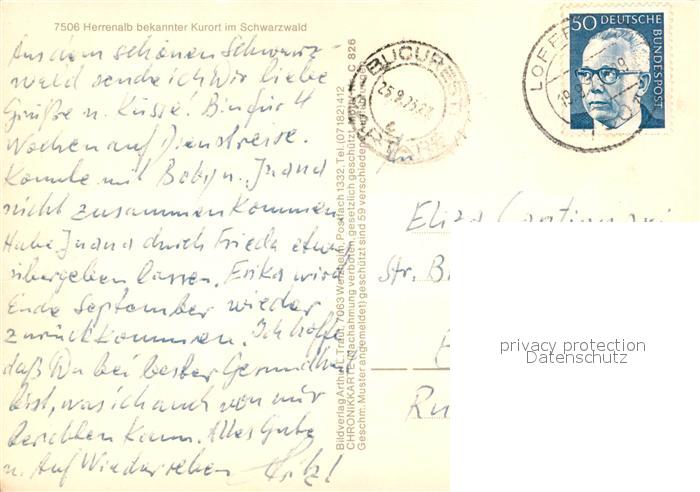 7506 Herrenalb bekannter Kurort im Schwarzwald
Aus dem schönen Schwarz-
wald sende ich Dir liebe
Grüße u. Küsse! Bin für 4
Wochen auf Dienstreise.
Konnte mit Boby u. Juana
nicht zusammenkommen.
Habe Juana durch Frieda etwas
übergeben lassen. Erika wird
Ende September wieder
zurückkommen. Ich hoffe
daß Du bei bester Gesundheit
bist, was ich auch von mir
berichten kann. Alles Gute
u. Auf Wiedersehen
Bildverlag Arthur L. Traut, 7063 Welzheim, Postfach 1332, Tel. (07182) 412
CHRONIKKARTE (Nachahmung verboten, gesetzlich geschützt)
Geschm. Muster angemeldet) geschützt sind 59 verschiedene
C 826
BUCUREȘTI
25.9.75
50 DEUTSCHE
BUNDESPOST
An
Eliza
Str.
privacy protection
Datenschutz